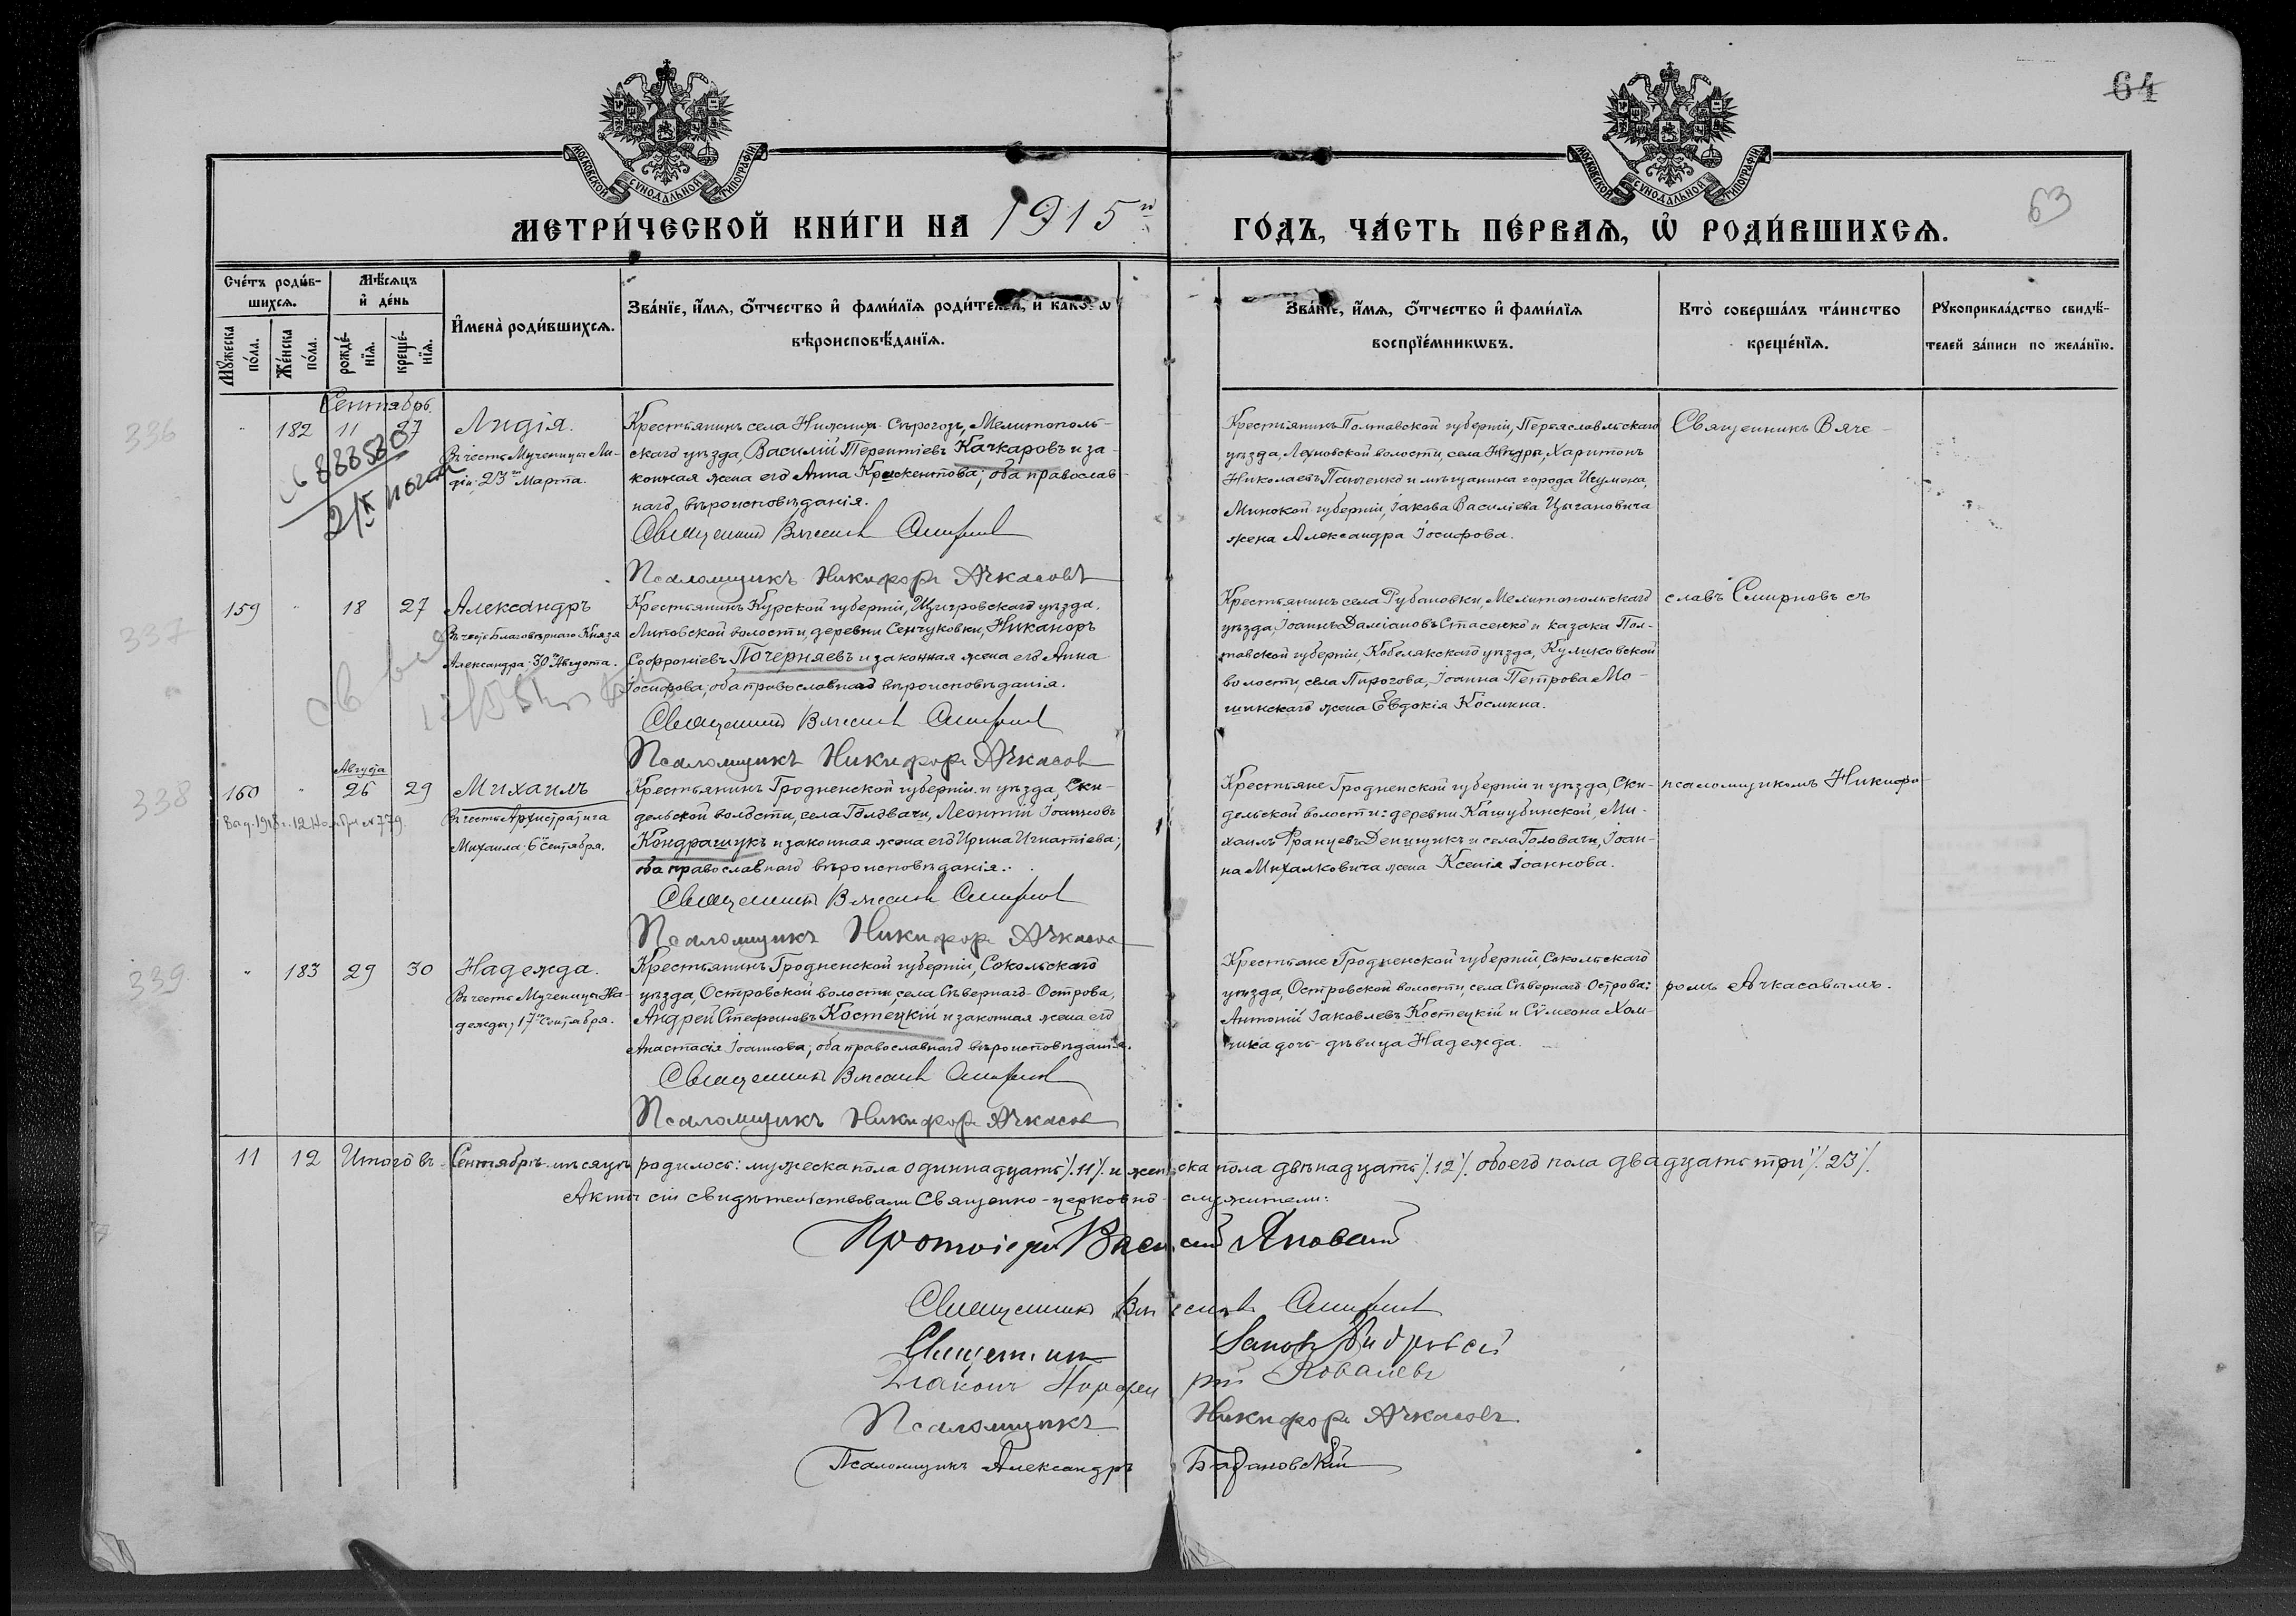 64
63
МОСКОВСКОЙ СѴНОДАЛЬНОЙ ТИПОГРАФІИ
МОСКОВСКОЙ СѴНОДАЛЬНОЙ ТИПОГРАФІИ
МЕТРИ́ЧЕСКОЙ КНИ́ГИ НА 1915й ГО́ДЪ, ЧА́СТЬ ПЕ́РВАѦ, Ѡ҆ РОДИ́ВШИХСѦ.
Сче́тъ роди́вшихсѧ.
Мꙋ́жеска по́ла.
Же́нска по́ла.
Мѣ́сѧцъ и҆ де́нь
рожде́нїѧ.
креще́нїѧ.
И҆мена̀ роди́вшихсѧ.
Зва́нїе, и҆́мѧ, ѻ҆́тчество и҆ фами́лїѧ роди́телей, и҆ како́гѡ
вѣроисповѣ́данїѧ.
Зва́нїе, и҆́мѧ, ѻ҆́тчество и҆ фами́лїѧ
воспрїе́мникѡвъ.
Кто̀ соверша́лъ та́инство
креще́нїѧ.
Рꙋкоприкла́дство свидѣ́-
телей за́писи по жела́нїю.
Сентябрь.
336
182 11 27
Лидія.
Въ честь Мученицы Ли-
діи; 23го Марта.
888580
Крестьянинъ села Нижнихъ-Сѣрогозъ, Мелитополь-
скаго уѣзда, Василій Терентіевъ Качкаровъ и за-
конная жена его Анна Крискентова; оба православ-
наго вѣроисповѣданія.
Священникъ Вячеславъ Смирновъ
Псаломщикъ Никифоръ Ачкасовъ
Крестьянинъ Полтавской губерніи, Переяславльскаго
уѣзда, Лехновской волости, села Харитонъ
Николаевъ Панченко и мѣщанина города Игумена,
Минской губерніи, Іакова Василіева Цыгановича
жена Александра Іосифова.
Священникъ Вяче-
337
159 18 27
Александръ
Въ честь Благовѣрнаго Князя
Александра; 30го Августа.
Крестьянинъ Курской губерніи, Щигровскаго уѣзда,
Липовской волости, деревни Сенчуковки, Никаноръ
Софроніевъ Почерняевъ и законная жена его Анна
Іосифова; оба православнаго вѣроисповѣданія.
Священникъ Вячеславъ Смирновъ
Псаломщикъ Никифоръ Ачкасовъ
Крестьянинъ села Рубановки, Мелитопольскаго
уѣзда, Іоаннъ Даміановъ Стасенко и казака Пол-
тавской губерніи, Кобелякскаго уѣзда, Куликовской
волости, села Пирогова, Іоанна Петрова Мо-
шинскаго жена Евдокія Космина.
славъ Смирновъ съ
338
Августа
160 26 29
Михаилъ
Въ честь Архистратига
Михаила; 6го Сентября.
Выд. 1918 г. 12 Ноября № 779.
Крестьянинъ Гродненской губерніи и уѣзда, Ски-
дельской волости, села Головачи, Леонтій Іоанновъ
Кондрашукъ и законная жена его Ирина Игнатіева;
оба православнаго вѣроисповѣданія.
Священникъ Вячеславъ Смирновъ
Псаломщикъ Никифоръ Ачкасовъ
Крестьяне Гродненской губерніи и уѣзда, Ски-
дельской волости: деревни Кашубинской, Ми-
хаилъ Францевъ Денищикъ и села Головачи, Іоан-
на Михалковича жена Ксенія Іоаннова.
псаломщикомъ Никифо-
339
183 29 30
Надежда.
Въ честь Мученицы На-
дежды; 17го Сентября.
Крестьянинъ Гродненской губерніи, Сокольскаго
уѣзда, Островской волости, села Сѣвернаго-Острова,
Андрей Стефановъ Костецкій и законная жена его
Анастасія Іоаннова; оба православнаго вѣроисповѣданія.
Священникъ Вячеславъ Смирновъ
Псаломщикъ Никифоръ Ачкасовъ
Крестьяне Гродненской губерніи, Сокольскаго
уѣзда, Островской волости, села Сѣвернаго Острова:
Антоній Іаковлевъ Костецкій и Сѵмеона Хом-
чика дочь-дѣвица Надежда.
ромъ Ачкасовымъ.
11 12 Итого въ Сентябрѣ мѣсяцѣ родилось: мужеска пола одиннадцать ٪ 11 ٪ и женска пола двѣнадцать ٪ 12 ٪ обоего пола двадцать три ٪ 23 ٪.
Акты сіи свидѣтельствовали Священно-церковно-служители:
Протоіерей Василій Яновскій
Священникъ Вячеславъ Смирновъ
Священникъ
Діаконъ Порфирій Ковалевъ
Псаломщикъ Никифоръ Ачкасовъ.
Псаломщикъ Александръ Барановскій